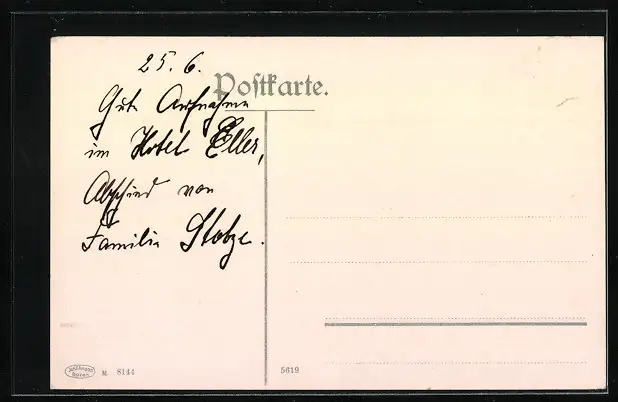 25. 6.
Postkarte.
Gute Aufnahme
im Hotel Eller,
Abschied von
Familie Stotze.
M. 8144
5619